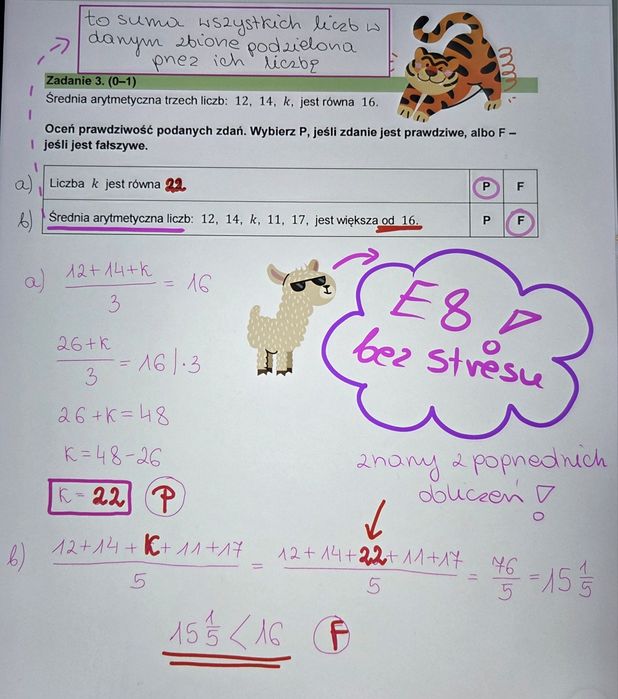 to suma wszystkich liczb w
danym zbiorze podzielona
przez ich liczbę
Zadanie 3. (0–1)
Średnia arytmetyczna trzech liczb: 12, 14, k, jest równa 16.
Oceń prawdziwość podanych zdań. Wybierz P, jeśli zdanie jest prawdziwe, albo F –
jeśli jest fałszywe.
a) Liczba k jest równa 22. P F
b) Średnia arytmetyczna liczb: 12, 14, k, 11, 17, jest większa od 16. P F
a) (12+14+k)/3 = 16
E8
bez stresu!
(26+k)/3 = 16 |·3
26+k=48
k=48-26
k=22 P
znamy z poprzednich
obliczeń!
b) (12+14+k+11+17)/5 = (12+14+22+11+17)/5 = 76/5 = 15 1/5
15 1/5 < 16 F